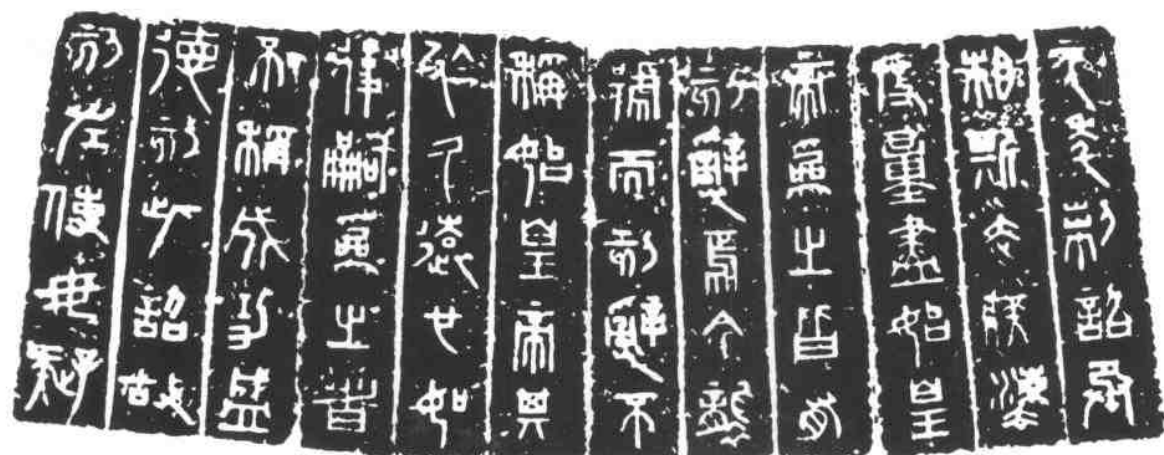 元年制詔丞
相斯去疾灋
度量盡始皇
帝為之皆有
刻辭焉今襲
號而刻辭不
稱始皇帝其
於久遠也如
後嗣為之者
不稱成功盛
德刻此詔故
刻左使毋疑